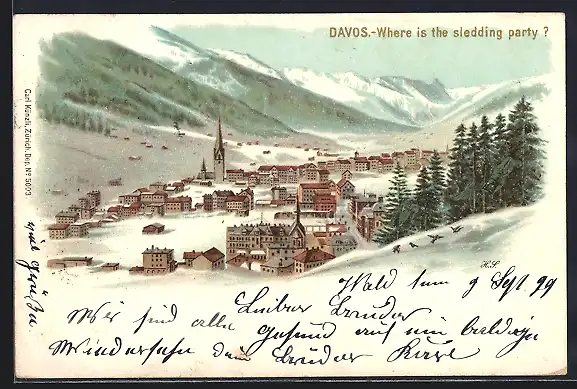 DAVOS.-Where is the sledding party ?
Carl Künzli, Zürich, Dep. No 5003.
H.S.
Wald tum 9 Sept 99
Lieber Bruder
Wir sind alle gesund auf ein baldige
Wiedersehn dein Bruder
mit Grüße